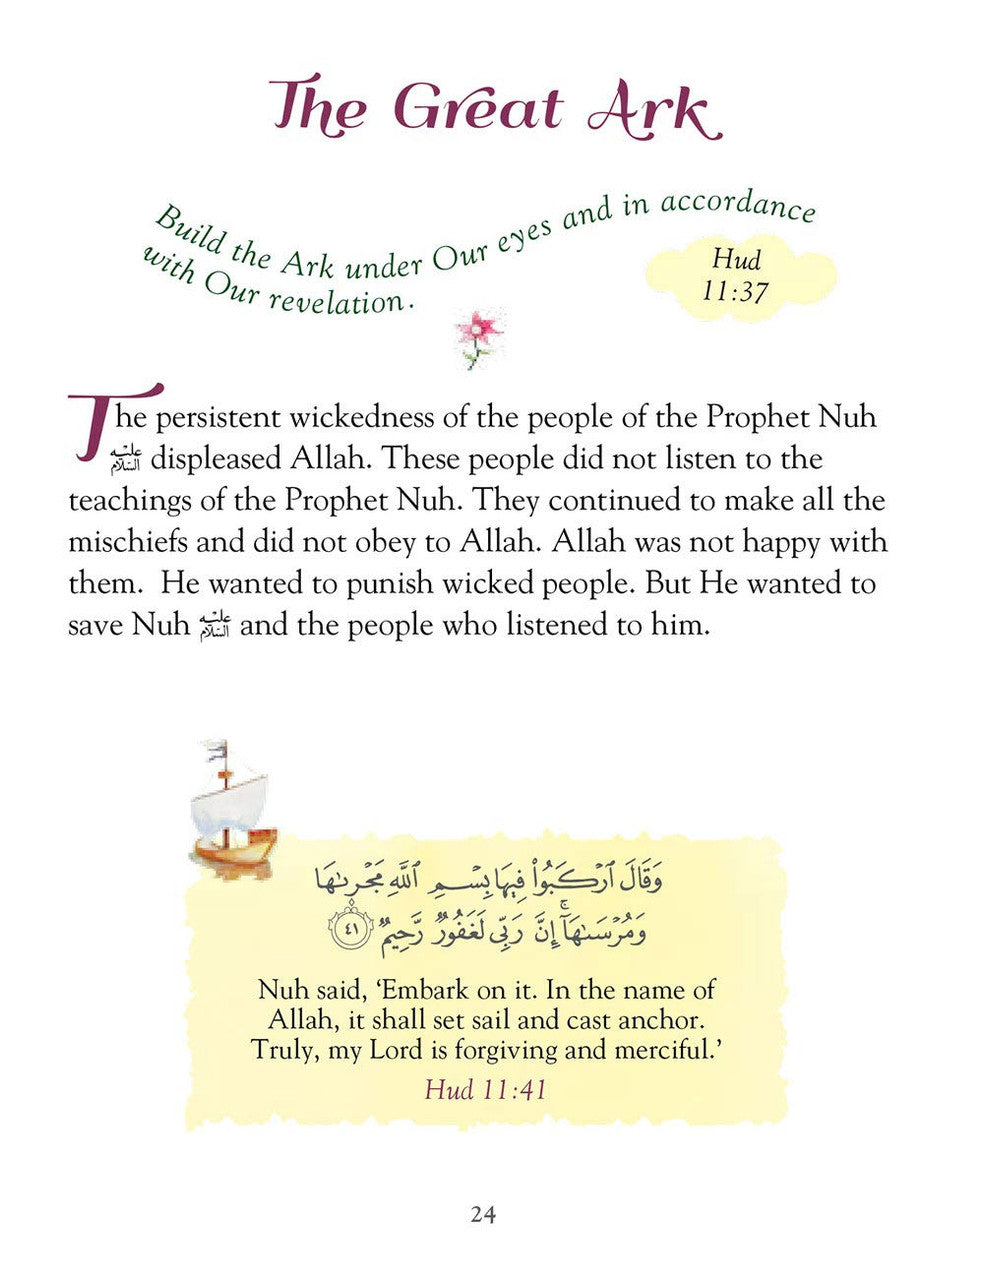 The Great Ark
Build the Ark under Our eyes and in accordance
with Our revelation.
Hud
11:37
The persistent wickedness of the people of the Prophet Nuh
عليه السلام displeased Allah. These people did not listen to the
teachings of the Prophet Nuh. They continued to make all the
mischiefs and did not obey to Allah. Allah was not happy with
them.  He wanted to punish wicked people. But He wanted to
save Nuh عليه السلام and the people who listened to him.
وَقَالَ ٱرۡكَبُواْ فِيهَا بِسۡمِ ٱللَّهِ مَجۡرٜىٰهَا
وَمُرۡسَىٰهَآۚ إِنَّ رَبِّي لَغَفُورٞ رَّحِيمٞ ٤١
Nuh said, ‘Embark on it. In the name of
Allah, it shall set sail and cast anchor.
Truly, my Lord is forgiving and merciful.’
Hud 11:41
24